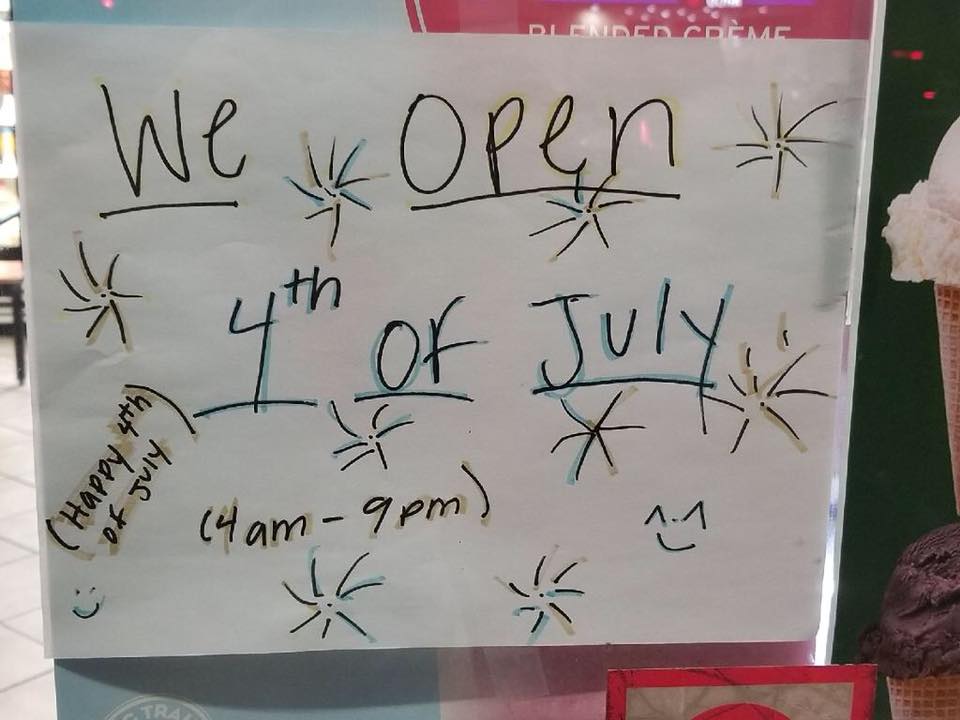 BLENDED CRÈME
We Open
4th of July
(Happy 4th
of July
(4am - 9pm)